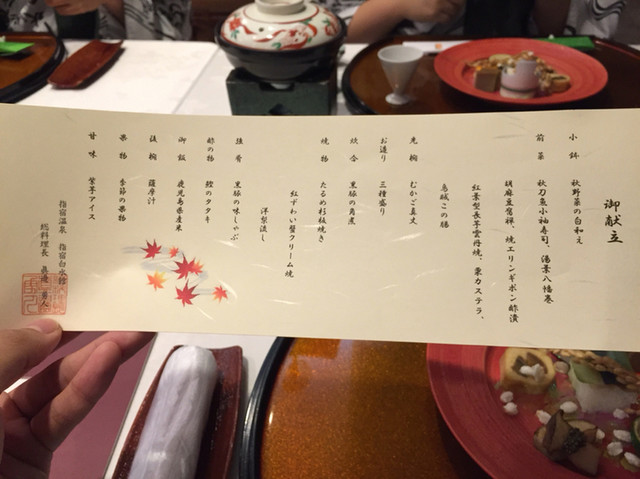 御献立
小鉢 秋野菜の白和え
前菜 秋刀魚小袖寿司、湯葉八幡巻
胡麻豆腐禅、焼エリンギポン酢漬
紅葉型長芋雲丹焼、栗カステラ、
鳥賊この腸
先椀 むかご真丈
お造り 三種盛り
炊合 黒豚の角煮
焼物 たるめ杉板焼き
紅ずわい蟹クリーム焼
洋梨流し
強肴 黒豚の味しゃぶ
酢の物 鰹のタタキ
御飯 鹿児島県産米
後椀 薩摩汁
果物 季節の果物
甘味 紫芋アイス
指宿温泉 指宿白水館
総料理長